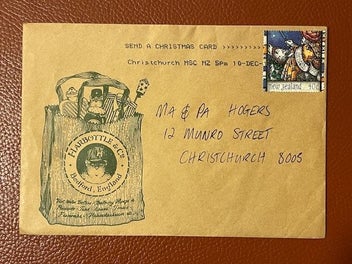 SEND A CHRISTMAS CARD >>>>>>>>
Christchurch MSC NZ 5pm 10-DEC-
new zealand 40c
MA & PA HOGERS
12 MUNRO STREET
CHRISTCHURCH 8005
HARBOTTLE & Co
Bedford, England